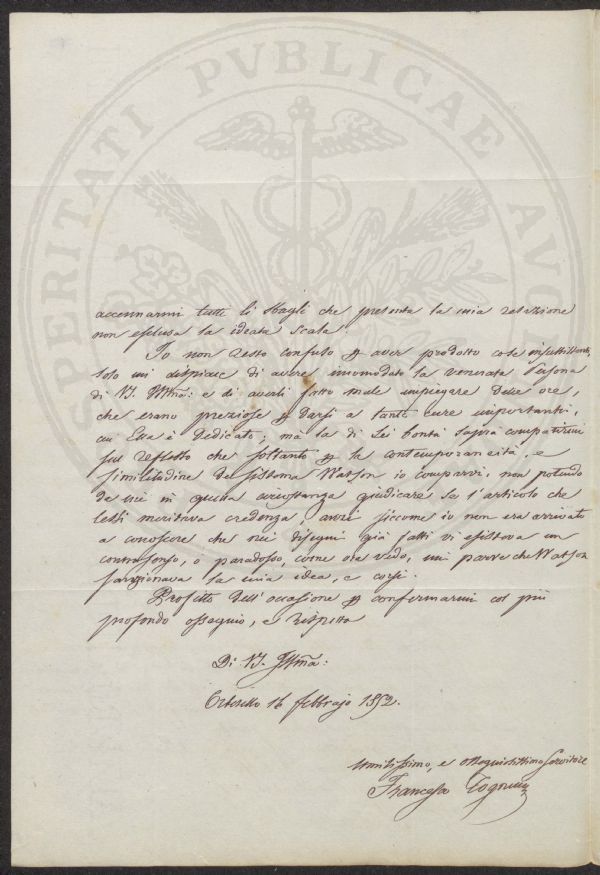 PROSPERITATI PVBLICAE AVGENDAE
accennarmi tutti li sbagli che presenta la mia relazione
non esclusa la ideata scala.
Io non resto confuso p aver prodotto cose insussistenti,
solo mi dispiace di avere incomodato la venerata Persona
di V. S. Illma: e di averli fatto male impiegare delle ore,
che erano preziose p darsi a tante cure importanti,
cui Essa è dedicato; mà la di Lei bontà saprà compatirmi
sul riflesso che soltanto p la contemporaneità, e
similitudine del sistema Watson io comparvi, non potendo
da me in questa circostanza giudicare se l'articolo che
lessi meritava credenza, anzi siccome io non era arrivato
a conoscere che nei disegni già fatti vi esisteva un
controsenso, o paradosso, come ora vedo, mi parve che Watson
sanzionava la mia idea, e corsi.
Profitto dell'occasione p confermarmi col più
profondo ossequio, e rispetto
Di V. S. Illma:
Orbetello 16 febbrajo 1852.
Umilissimo, e ossequiosissimo Servitore
Francesco